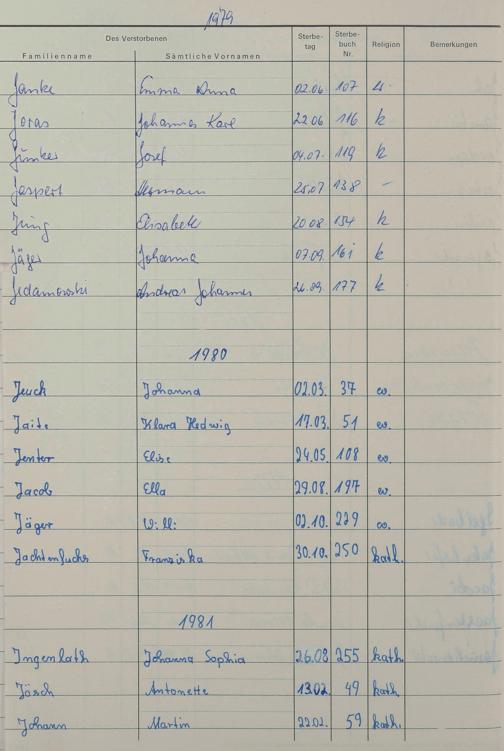 1979
Des Verstorbenen Sterbe- Sterbe- Religion Bemerkungen
Familienname Sämtliche Vornamen tag buch Nr.
Janke Emma Anna 02.06 107
Joras Johannes Karl 22.06 116 k
Junker Josef 04.07. 119 k
Jaspert Hermann 25.07 138 -
Jung Elisabeth 20 08 154 k
Jäger Johanna 07.09. 161 k
Jedamowski Andreas Johannes 26.09. 177 k
1980
Jeuck Johanna 02.03. 37 ev.
Jaite Klara Hedwig 17.03. 51 ev.
Jenter Elise 24.05 108 ev.
Jacob Ella 29.08. 197 ev.
Jäger Willi 02.10. 229 ev.
Jachtenfuchs Franziska 30.10. 250 kath.
1981
Ingenlath Johanna Sophia 26.08 255 kath
Jösch Antonette 13.02. 49 kath
Johann Martin 22.02. 59 kath.